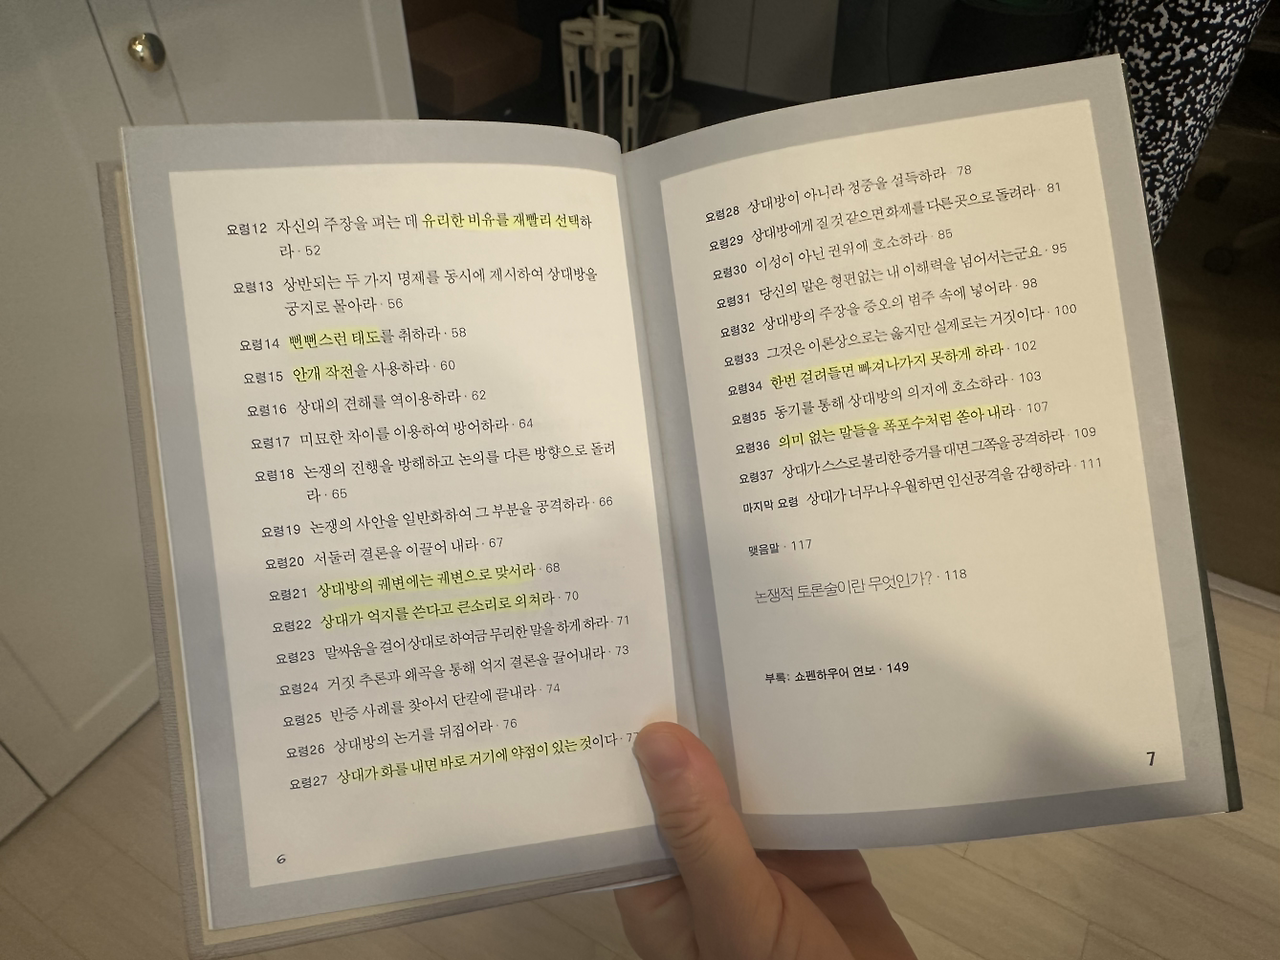 요령12 자신의 주장을 펴는 데 유리한 비유를 재빨리 선택하
라 · 52
요령13 상반되는 두 가지 명제를 동시에 제시하여 상대방을
궁지로 몰아라 · 56
요령14 뻔뻔스런 태도를 취하라 · 58
요령15 안개 작전을 사용하라 · 60
요령16 상대의 견해를 역이용하라 · 62
요령17 미묘한 차이를 이용하여 방어하라 · 64
요령18 논쟁의 진행을 방해하고 논의를 다른 방향으로 돌려
라 · 65
요령19 논쟁의 사안을 일반화하여 그 부분을 공격하라 · 66
요령20 서둘러 결론을 이끌어 내라 · 67
요령21 상대방의 궤변에는 궤변으로 맞서라 · 68
요령22 상대가 억지를 쓴다고 큰소리로 외쳐라 · 70
요령23 말싸움을 걸어 상대로 하여금 무리한 말을 하게 하라 · 71
요령24 거짓 추론과 왜곡을 통해 억지 결론을 끌어내라 · 73
요령25 반증 사례를 찾아서 단칼에 끝내라 · 74
요령26 상대방의 논거를 뒤집어라 · 76
요령27 상대가 화를 내면 바로 거기에 약점이 있는 것이다 · 77
6
요령28 상대방이 아니라 청중을 설득하라 · 78
요령29 상대방에게 질 것 같으면 화제를 다른 곳으로 돌려라 · 81
요령30 이성이 아닌 권위에 호소하라 · 85
요령31 당신의 말은 형편없는 내 이해력을 넘어서는군요 · 95
요령32 상대방의 주장을 증오의 범주 속에 넣어라 · 98
요령33 그것은 이론상으로는 옳지만 실제로는 거짓이다 · 100
요령34 한번 걸려들면 빠져나가지 못하게 하라 · 102
요령35 동기를 통해 상대방의 의지에 호소하라 · 103
요령36 의미 없는 말들을 폭포수처럼 쏟아 내라 · 107
요령37 상대가 스스로 불리한 증거를 대면 그쪽을 공격하라 · 109
마지막 요령 상대가 너무나 우월하면 인신공격을 감행하라 · 111
맺음말 · 117
논쟁적 토론술이란 무엇인가? · 118
부록: 쇼펜하우어 연보 · 149
7